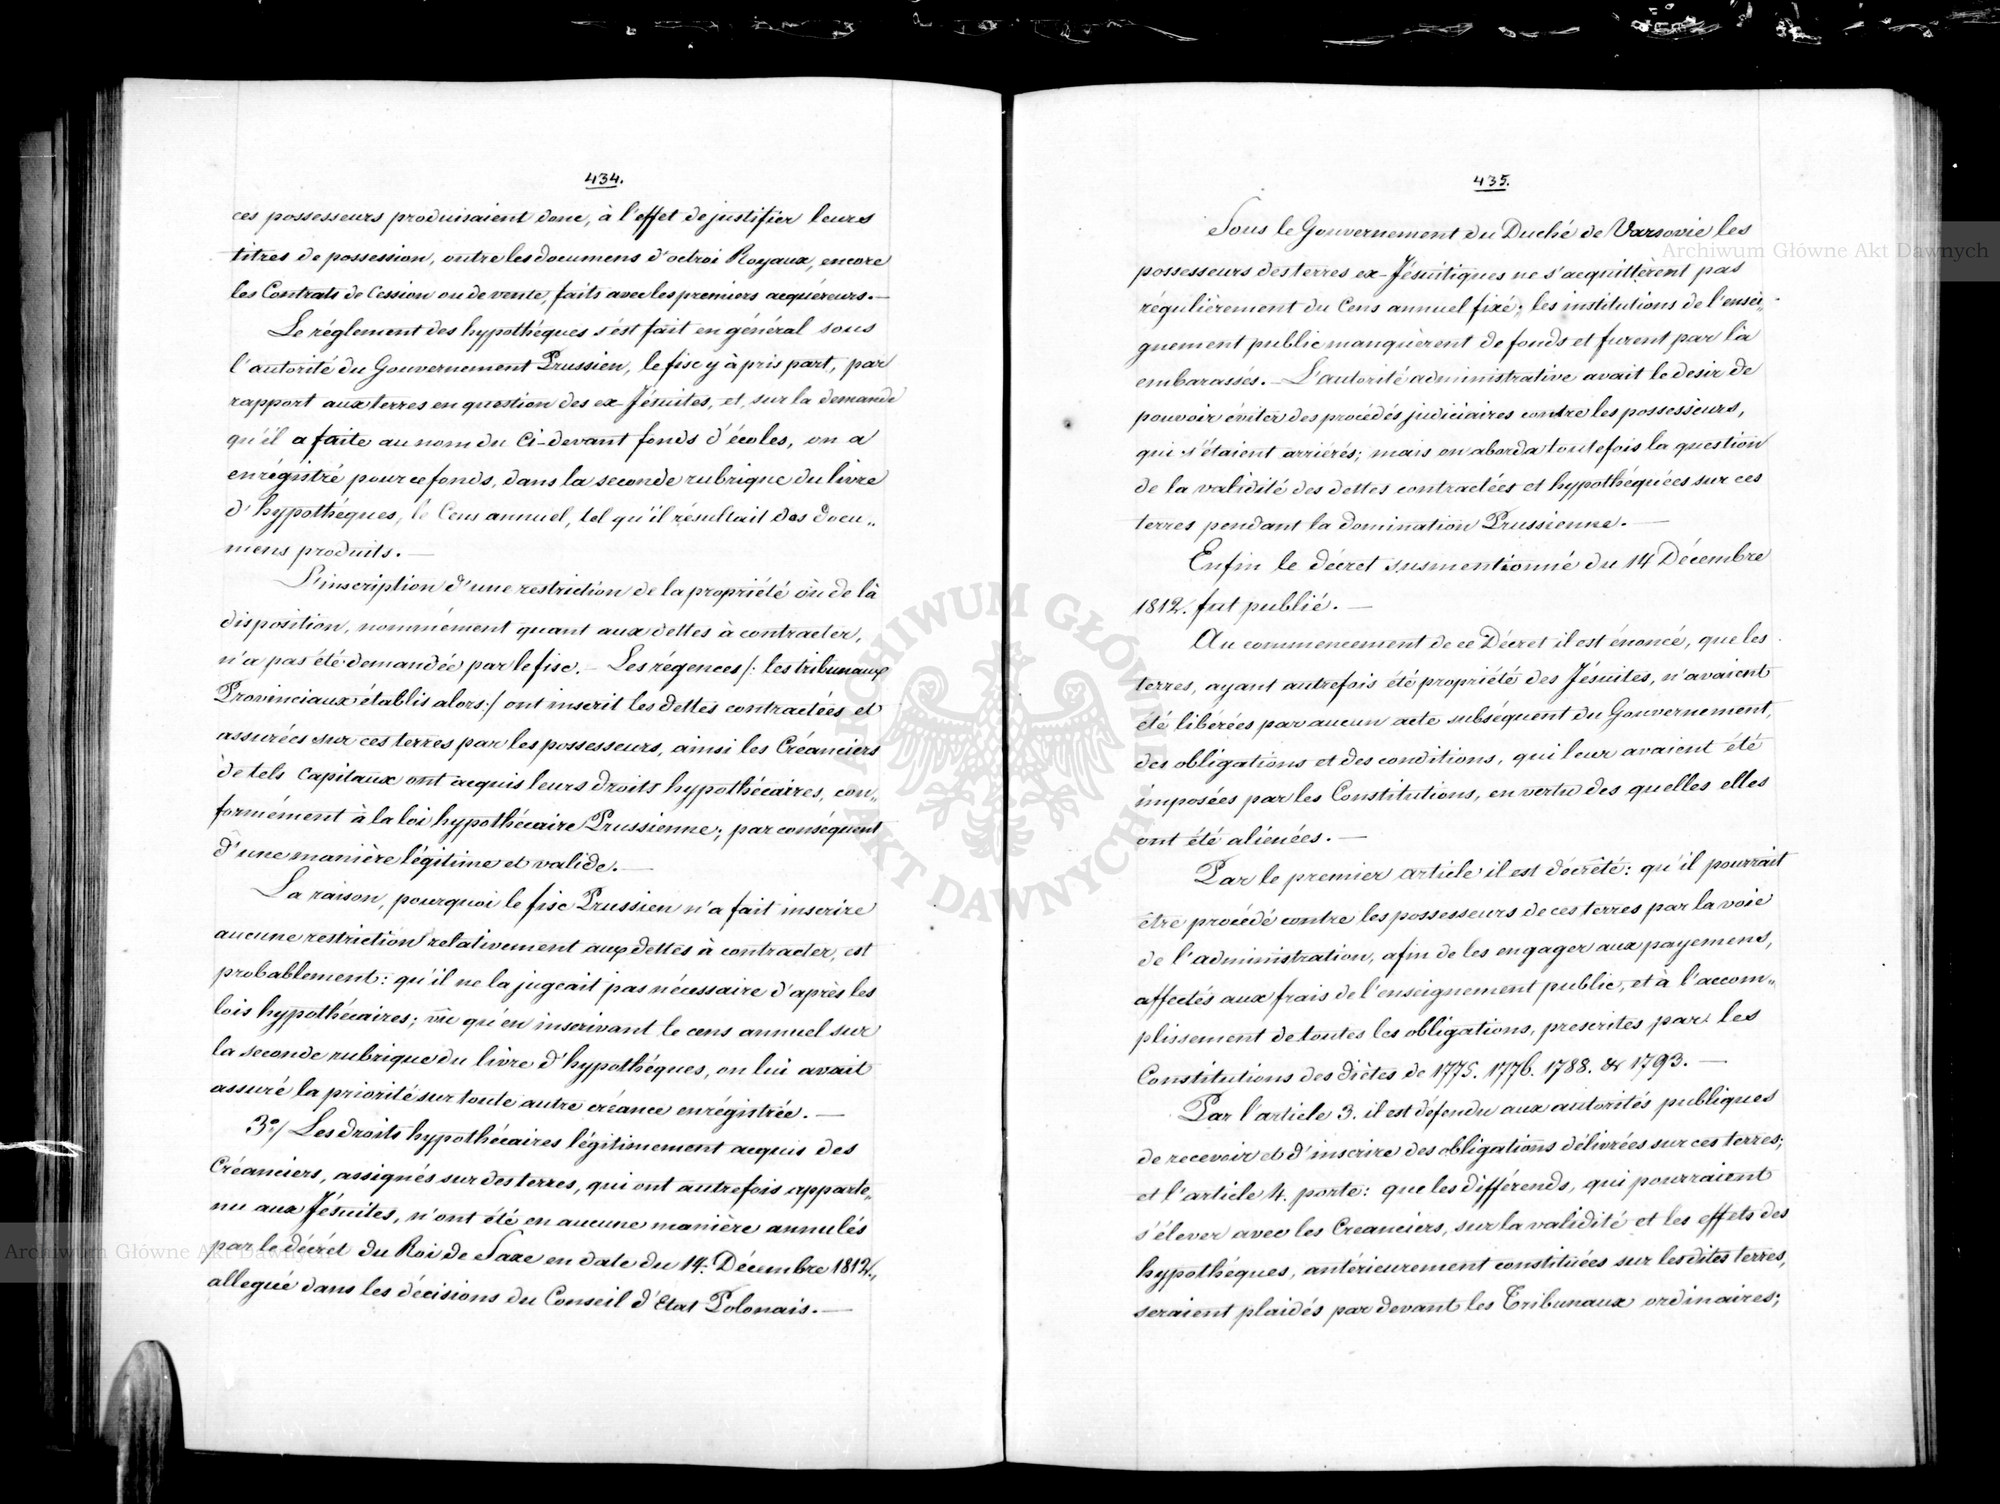 434.
ces possesseurs produisaient donc, à l'effet de justifier leurs
titres de possession, outre les documens d'octroi Royaux, encore
les Contrats de Cession ou de vente, faits avec les premiers acquéreurs.—
Le réglement des hypothéques s'est fait en général sous
l'autorité du Gouvernement Prussien, le fisc y à pris part, par
rapport aux terres en question des ex-Jésuites, et, sur la demande
qu'il a faite au nom du Ci-devant fonds d'écoles, on a
enrégistré pour ce fonds, dans la seconde rubrique du livre
d'hypothéques, le Cens annuel, tel qu'il résultait des docu„
mens produits.—
L'inscription d'une restriction de la propriété où de là
disposition, nommément quant aux dettes à contracter,
n'a pas été demandée par le fisc.— Les régences /: les tribunaux
Provinciaux établis alors :/ ont inscrit les dettes contractées et
assurées sur ces terres par les possesseurs, ainsi les Créanciers
de tels Capitaux ont acquis leurs droits hypothécaires, con„
formément à la loi hypothécaire Prussienne; par conséquent
d'une manière légitime et valide.—
La raison, pourquoi le fisc Prussien n'a fait inscrire
aucune restriction relativement aux dettes à contracter, est
probablement: qu'il ne la jugeait pas nécessaire d'après les
lois hypothécaires; vû qu'en inscrivant le cens annuel sur
la seconde rubrique du livre d'hypothéques, on lui avait
assuré la priorité sur toute autre créance enrégistrée.—
3º/ Les droits hypothécaires légitimement acquis des
Créanciers, assignés sur des terres, qui ont autrefois apparte„
nu aux Jésuites, n'ont été en aucune manière annulés
par le décrét du Roi de Saxe en date du 14. Décembre 1812.,
allegué dans les décisions du Conseil d'Etat Polonais.—
435.
Sous le Gouvernement du Duché de Varsovie les
possesseurs des terres ex-Jésuitiques ne s'acquittèrent pas
régulièrement du Cens annuel fixé; les institutions de l'ensei„
gnement public manquèrent de fonds et furent par là
embarassés.— L'autorité administrative avait le desir de
pouvoir éviter des procédés judiciaires contre les possesseurs,
qui s'étaient arriérés; mais on aborda toutefois la question
de la validité des dettes contractées et hypothéquées sur ces
terres pendant la domination Prussienne.—
Enfin le décret susmentionné du 14 Décembre
1812. fut publié.—
Au commencement de ce Décret il est énoncé, que les
terres, ayant autrefois été propriété des Jésuites, n'avaient
été libérées par aucun acte subséquent du Gouvernement,
des obligations et des conditions, qui leur avaient été
imposées par les Constitutions, en vertu des quelles elles
ont été aliénées.—
Par le premier article il est décrété: qu'il pourrait
être procédé contre les possesseurs de ces terres par la voie
de l'administration, afin de les engager aux payemens,
affectés aux frais de l'enseignement public, et à l'accom„
plissement de toutes les obligations, prescrites par les
Constitutions des diètes de 1775. 1776. 1788. & 1793.—
Par l'article 3. il est défendu aux autorités publiques
de recevoir et d'inscrire des obligations délivrées sur ces terres;
et l'article 4. porte: que les différends, qui pourraient
s'élever avec les Creanciers, sur la validité et les effets des
hypothéques, antérieurement constituées sur les dites terres,
seraient plaidés par devant les Tribunaux ordinaires;
Archiwum Główne Akt Dawnych
Archiwum Główne Akt Dawnych
ARCHIWUM GŁÓWNE AKT DAWNYCH